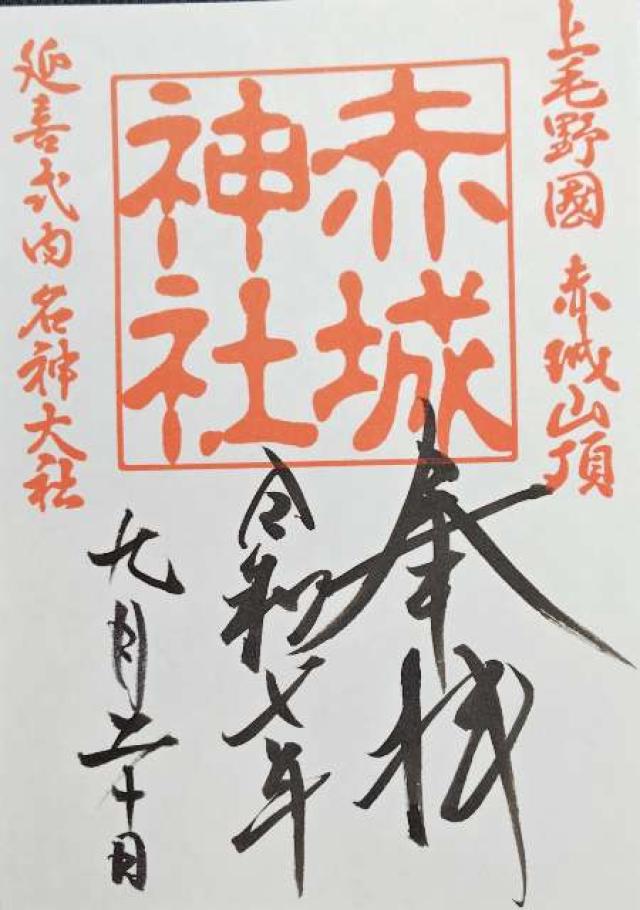 上毛野國 赤城山頂
赤城
神社
延喜式内名神大社
奉拝
令和七年
九月二十日